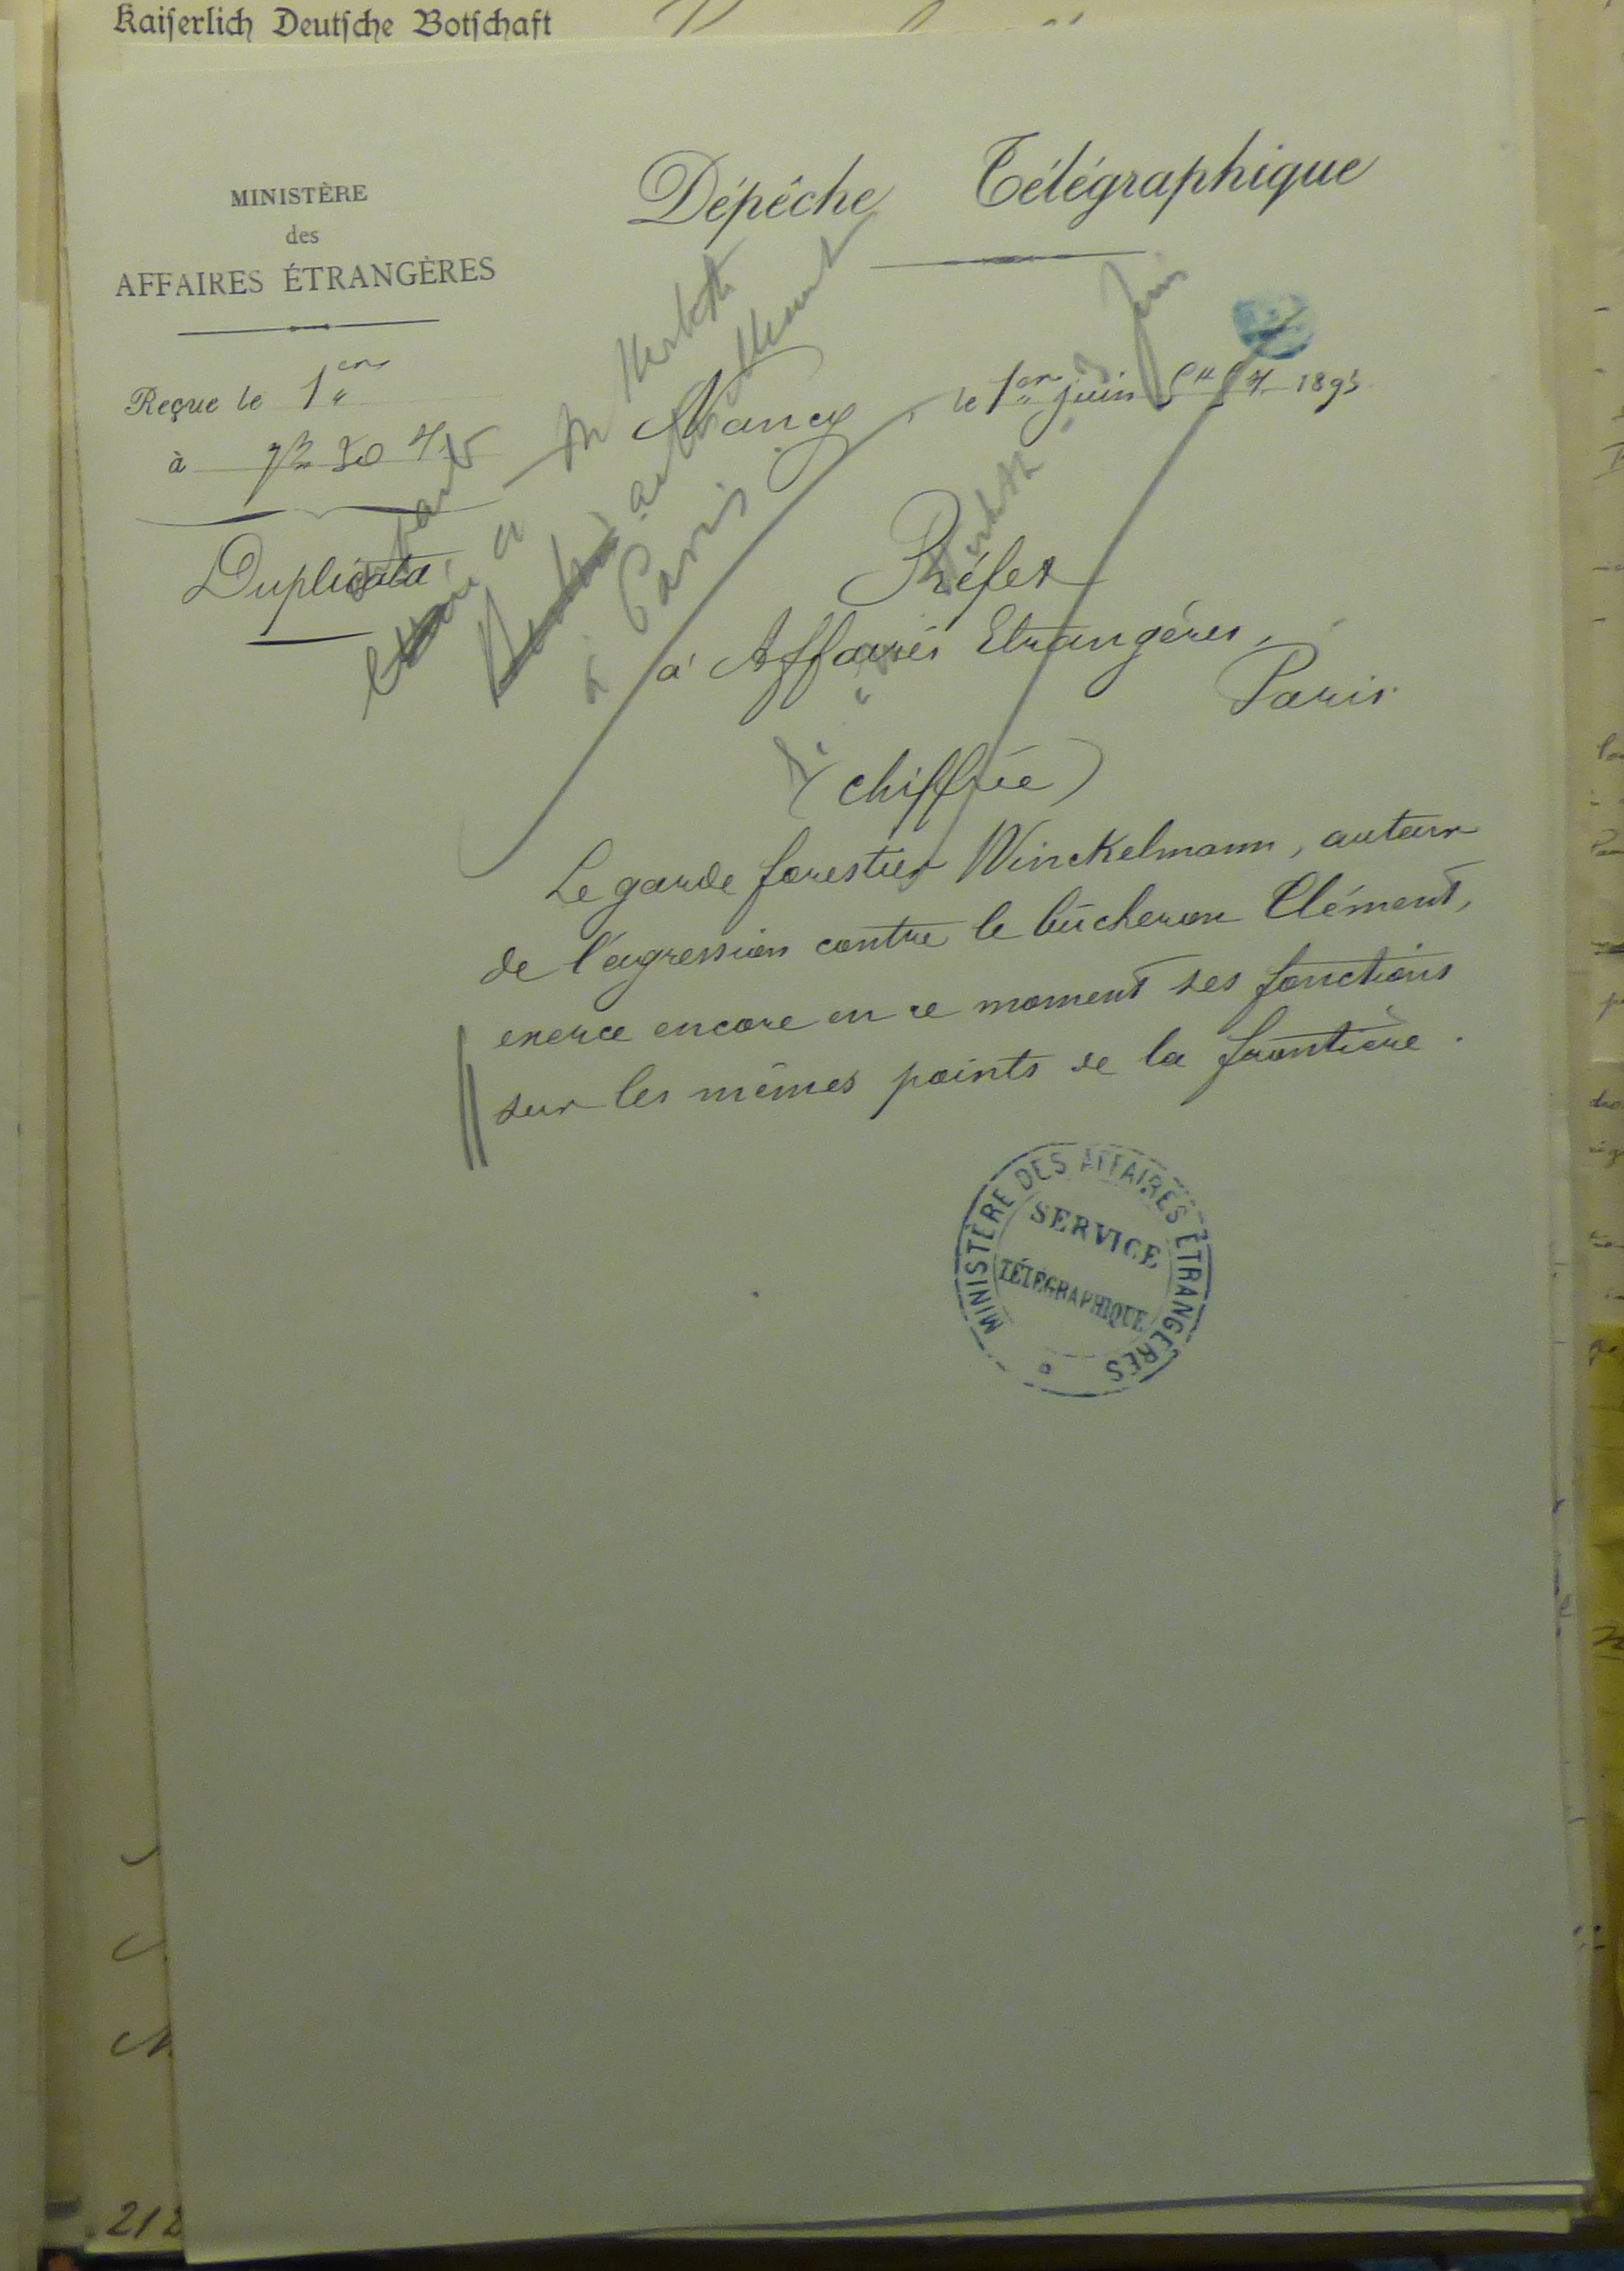 Kaiserlich Deutsche Botschaft
MINISTÈRE
des
AFFAIRES ÉTRANGÈRES
Dépêche Télégraphique
Reçue le 1er
à 7h 30
Duplicata
Nancy, le 1er juin 189
Juin
Préfet
à Affaires Etrangères,
Paris
(chiffrée)
à Paris
Le garde forestier Winckelmann, auteur
de l'agression contre le bûcheron Clément,
exerce encore en ce moment ses fonctions
sur les mêmes points de la frontière.
MINISTÈRE DES AFFAIRES ÉTRANGÈRES
SERVICE
TÉLÉGRAPHIQUE
212